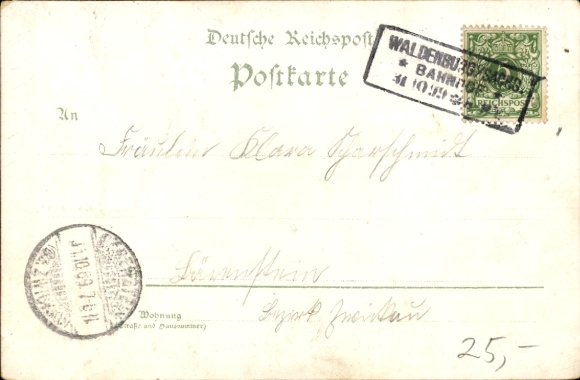 Deutsche Reichspost
Postkarte
WALDENBURG (SACHS.)
* BAHNHOF *
31 10 99
REICHSPOST
An
Fräulein Klara Scharschmidt
Bärenstein
Bezirk Zwickau
Wohnung
(Straße und Hausnummer)
25,-